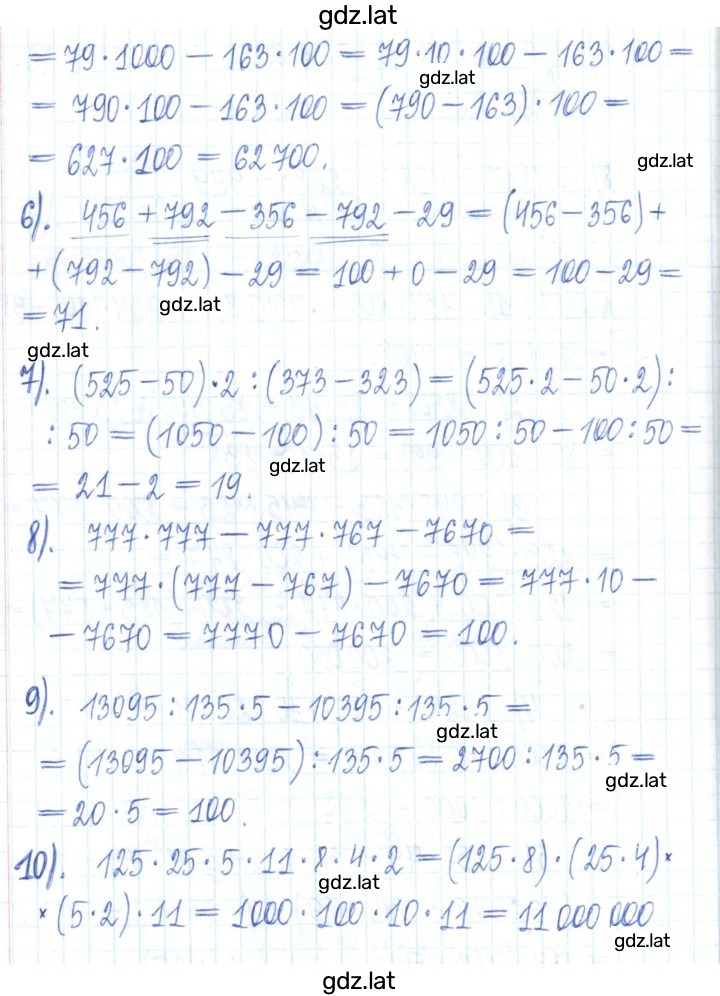 gdz.lat
= 79·1000 − 163·100 = 79·10·100 − 163·100 =
gdz.lat
= 790·100 − 163·100 = (790 − 163)·100 =
= 627·100 = 62700.
gdz.lat
6). 456 + 792 − 356 − 792 − 29 = (456 − 356) +
+ (792 − 792) − 29 = 100 + 0 − 29 = 100 − 29 =
gdz.lat
= 71.
gdz.lat
7). (525 − 50)·2 : (373 − 323) = (525·2 − 50·2) :
: 50 = (1050 − 100) : 50 = 1050 : 50 − 100 : 50 =
gdz.lat
= 21 − 2 = 19.
8). 777·777 − 777·767 − 7670 =
= 777·(777 − 767) − 7670 = 777·10 −
− 7670 = 7770 − 7670 = 100.
9). 13095 : 135·5 − 10395 : 135·5 =
gdz.lat
= (13095 − 10395) : 135·5 = 2700 : 135·5 =
gdz.lat
= 20·5 = 100.
10). 125·25·5·11·8·4·2 = (125·8)·(25·4)×
gdz.lat
×(5·2)·11 = 1000·100·10·11 = 11000000
gdz.lat
gdz.lat